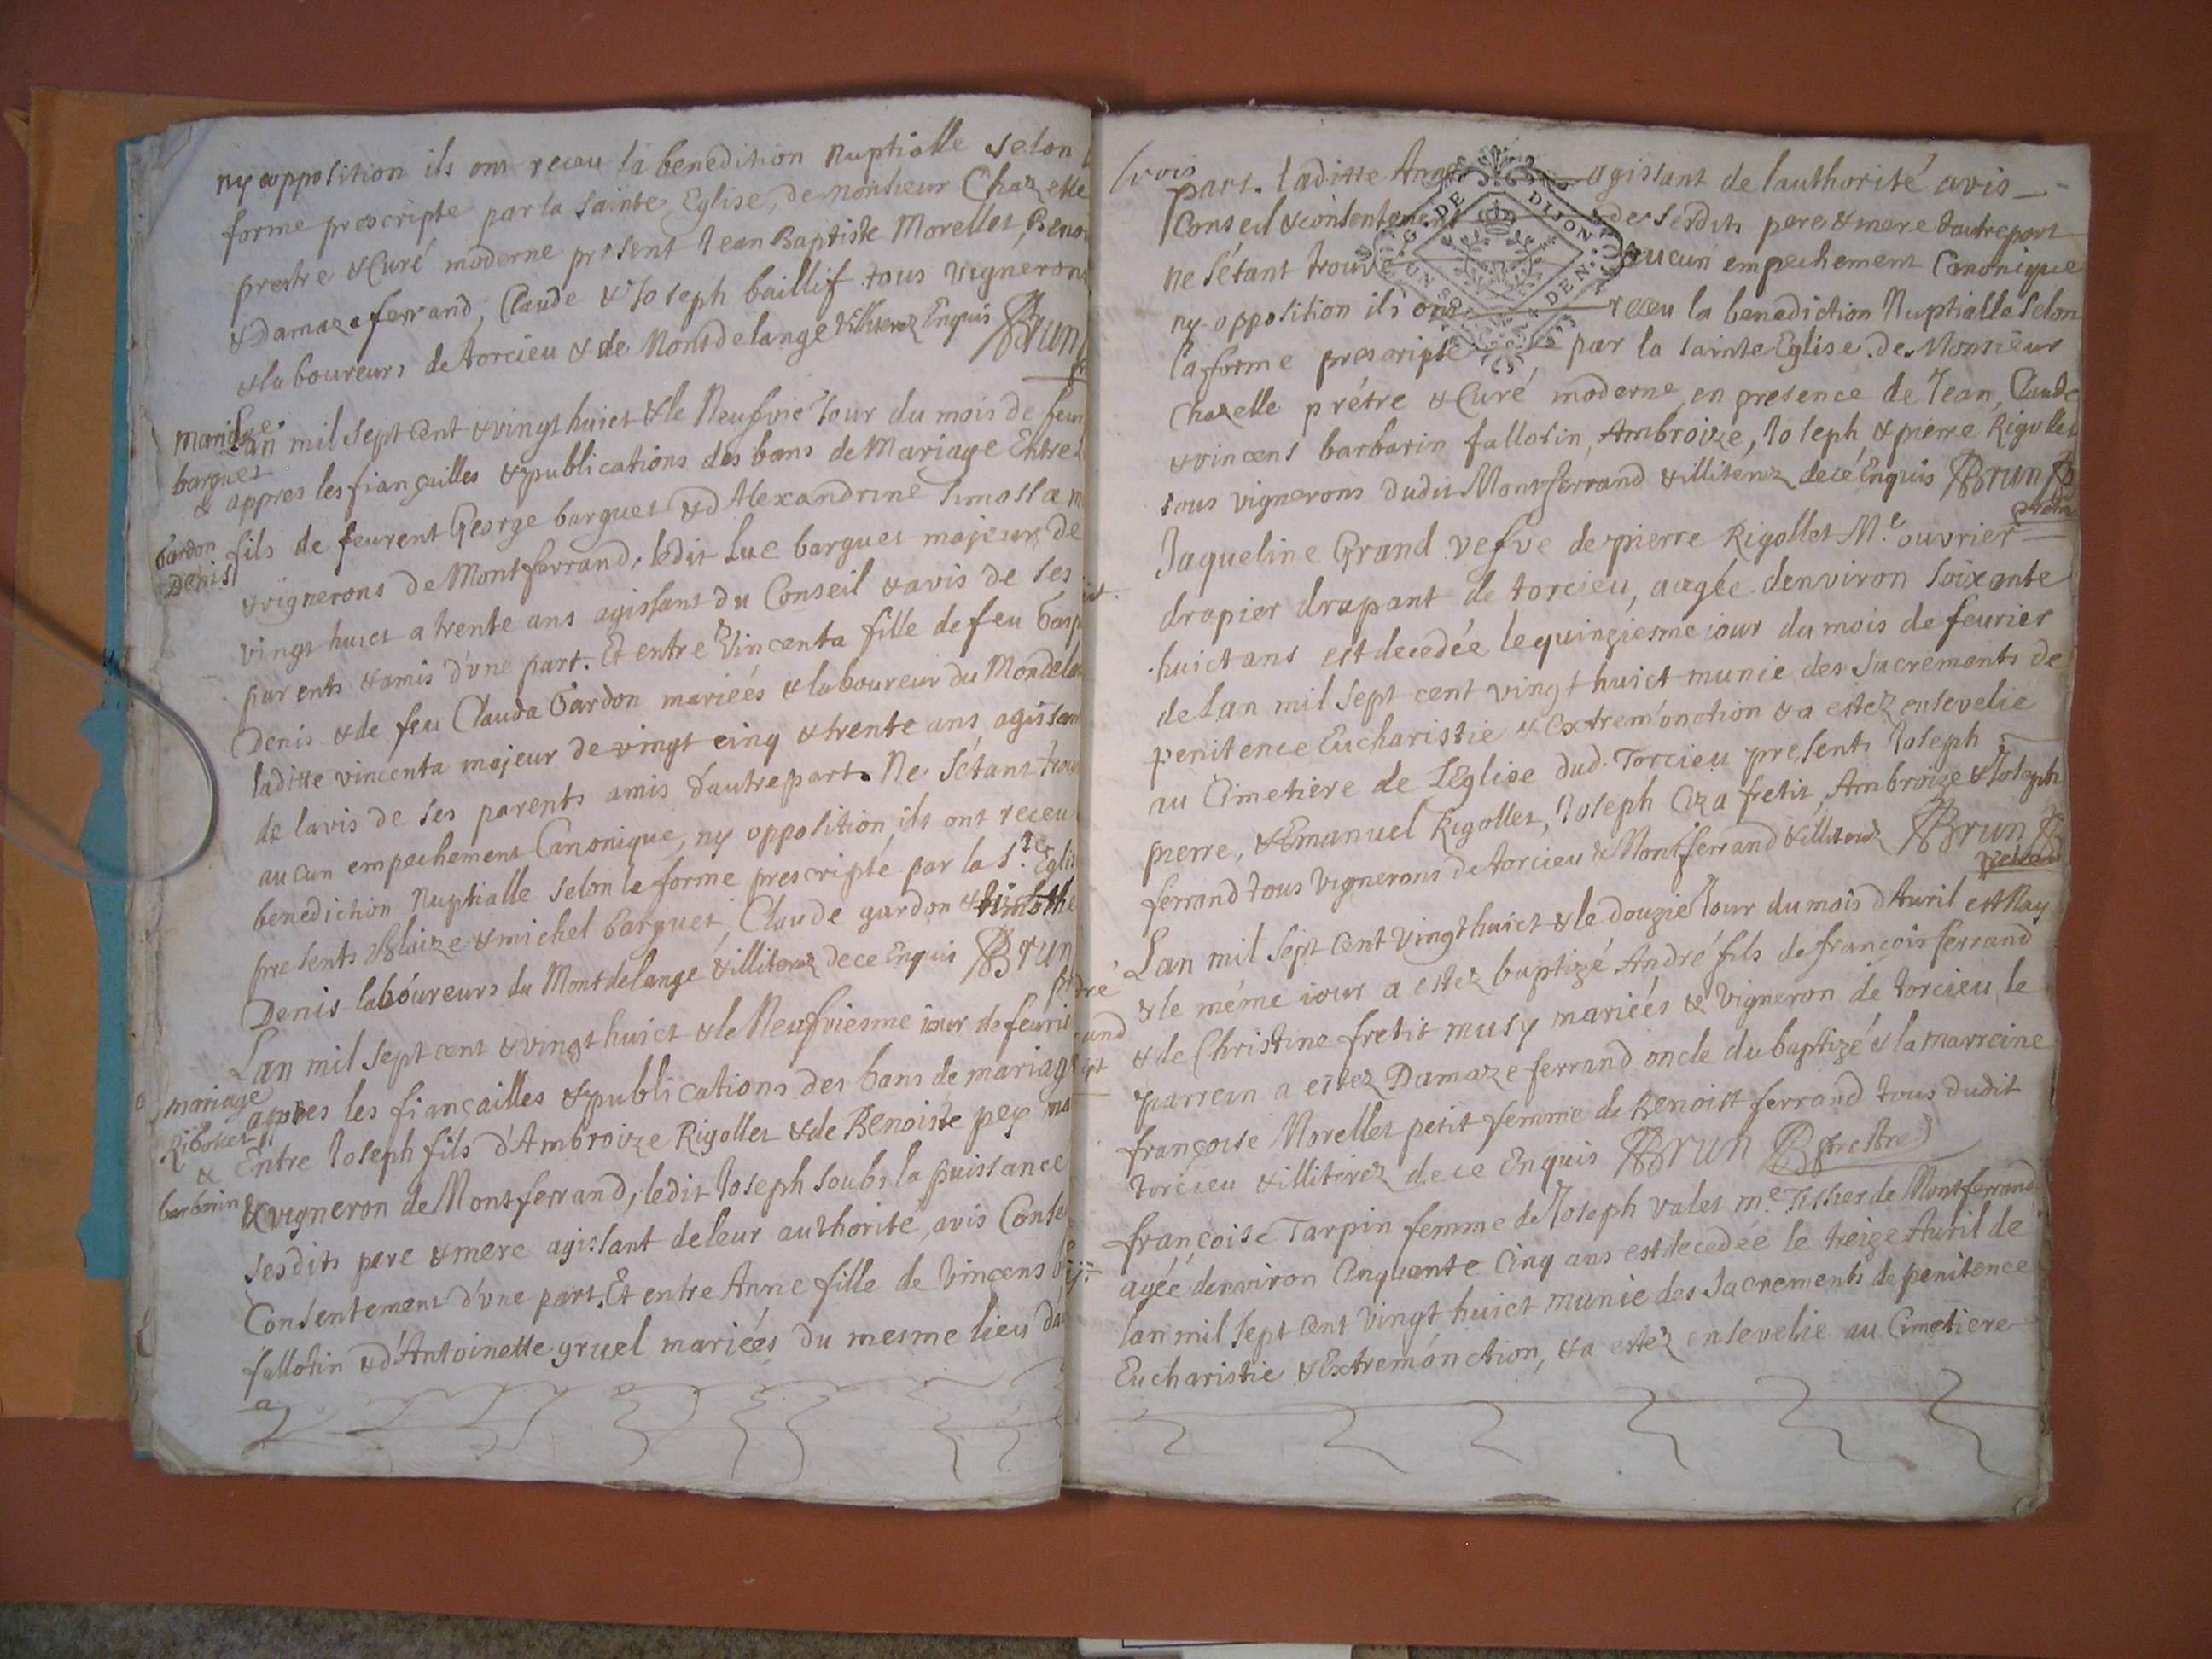 ny opposition ils ont receu la benedition Nuptialle selon
forme prescripte par la sainte Eglise, de Monsieur Chazelle
prestre & Curé moderne présent Jean Baptiste Morellet, Benoi
& Damaze ferrand, Claude & Joseph baillif tous vignerons
& laboureurs de torcieu & de Montdelange & illiterez Enquis Brun
mariage
barguet
&
Gardon
Denis
Lan mil sept cent & vingt huict & le Neufvié Jour du mois de feur
appres les fiançailles & publications des bans de Mariage Entre
fils de feurent George barguet & d'Alexandrine
& vignerons de Montferrand, ledit Luc barguet majeur de
vingt huict a trente ans agissant du Conseil & avis de ses
parents & amis d'vne part. Et entre Vincenta fille de feu Gasp
Denis & de feu Clauda Gardon mariéés & laboureur du Mondela
laditte vincenta majeur de vingt cinq & trente ans, agissant
de lavis de ses parents amis d'autre part. Ne s'étant trouv
aucun empechement Canonique, ny opposition, ils ont receu
benediction Nuptialle selon la forme prescripte par la Ste Eglis
presents Blaize & michel barguet, Claude gardon &
Denis laboureurs du Montdelange & illiterez dece Enquis Brun
mariage
Rigollet
&
barbarin
Lan mil sept cent & vingt huict & le Neufviesme iour de feurie
appres les fiancailles & publications des bans de mariage
Entre Joseph fils d'Ambroize Rigollet & de Benoiste pey ma
& vigneron de Montferrand, ledit Joseph soubs la puissance
sesdits pere & mere agissant de leur authorité, avis Conse
Consentement d'vne part. Et entre Anne fille de Vincens b
fallotin & d'Antoinette gruel mariéés du mesme lieu d'a
part. laditte Anne agissant de lauthorité avis
Conseil & consentement de sesdits pere & mere dautre part
ne s'étant trouvé aucun empechement Canonique
ny opposition ils ont receu la benediction Nuptialle selon
la forme prescripte par la sainte Eglise. de Monsieur
Chazelle prétre & Curé moderne en presence de Jean, Claude
& vincent barbarin fallotin, Ambroize, Joseph & pierre Rigollet
tous vignerons dudit Montferrand & illiterez decé Enquis Brun
G. DE DIJON
DEN.
Jaqueline Grand vefve de pierre Rigollet Me ouvrier
drapier drapant de torcieu, aagée denviron soixante
huict ans est decedée le quinziesme iour du mois de feurier
de Lan mil sept cent vingt huict munie des sacrements de
penitence Eucharistie & Extrem'onction & a estez ensevelie
au Cimetiere de l'Eglise dud. Torcieu presents Joseph
pierre, & Emanuel Rigollet, Joseph Coza fretit, Ambroize & Joseph
ferrand tous vignerons de torcieu & Montferrand & illiterez Brun
Lan mil sept cent vingt huict & le douzié Jour du mois d'Auril est Nay
& le méme iour a estez baptizé André fils de françois ferrand
& de Christine fretit musy mariéés & vigneron de torcieu le
parrein a estez Damaze ferrand oncle du baptizé & la marreine
françoise Morellet petit femme de Benoist ferrand tous dudit
torcieu & illiterez de ce Enquis Brun prestre
françoise Tarpin femme de Joseph valet me Tissier de Montferrand
agéé denviron Cinquante Cinq ans est decedéé le treize Auril de
lan mil sept cent vingt huict munie des sacrements de penitence
Eucharistie & Extremónction, & a estez ensevelie au Cimetiere